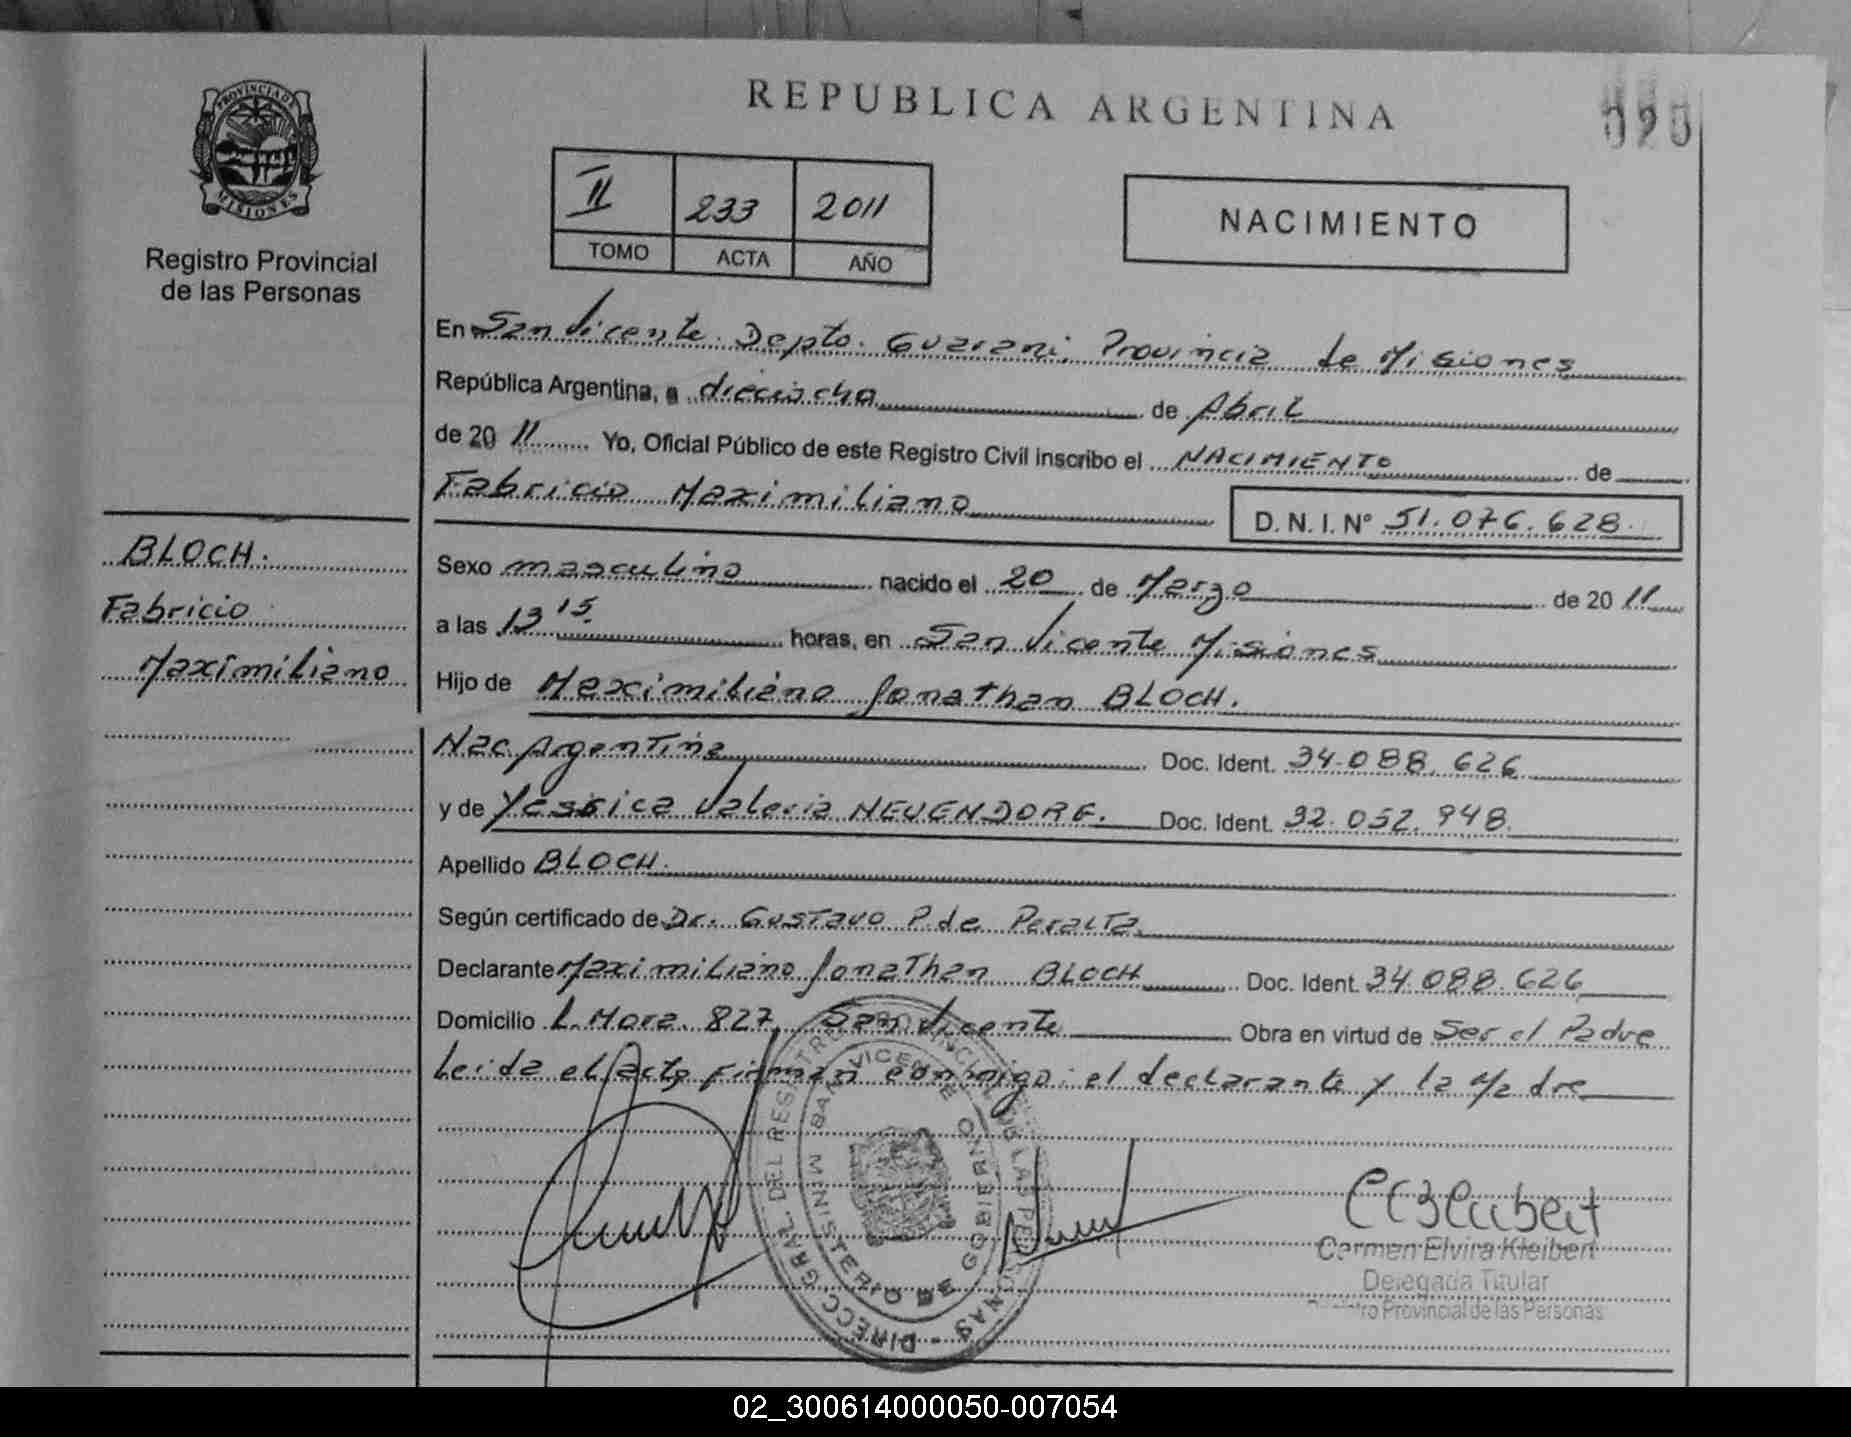 REPUBLICA ARGENTINA
020
PROVINCIA DE MISIONES
Registro Provincial
de las Personas
II 233 2011
TOMO ACTA AÑO
NACIMIENTO
En San Vicente. Depto. Guarani. Provincia de Misiones
República Argentina, a dieciocho de Abril
de 2011 Yo, Oficial Público de este Registro Civil inscribo el NACIMIENTO de
Fabricio Maximiliano D.N.I. N° 51.076.628.
BLOCH.
Fabricio
Maximiliano
Sexo masculino nacido el 20 de Marzo de 2011
a las 13 15. horas, en San Vicente Misiones
Hijo de Maximiliano Jonathan BLOCH.
Nac Argentina Doc. Ident. 34.088.626
y de Yessica Valeria NEUENDORF. Doc. Ident. 32.052.948.
Apellido BLOCH.
Según certificado de Dr. Gustavo P. de Peralta
Declarante Maximiliano Jonathan BLOCH Doc. Ident. 34.088.626
Domicilio L. Mora. 827, San Vicente Obra en virtud de Ser el Padre
Leida el acta firman conmigo: el declarante y la Madre
DIRECC. GRAL. DEL REGISTRO PROVINCIAL DE LAS PERSONAS -
SAN VICENTE
MINISTERIO DE GOBIERNO
Carmen Elvira Kleibert
Delegada Titular
Provincial de las Personas
02_300614000050-007054